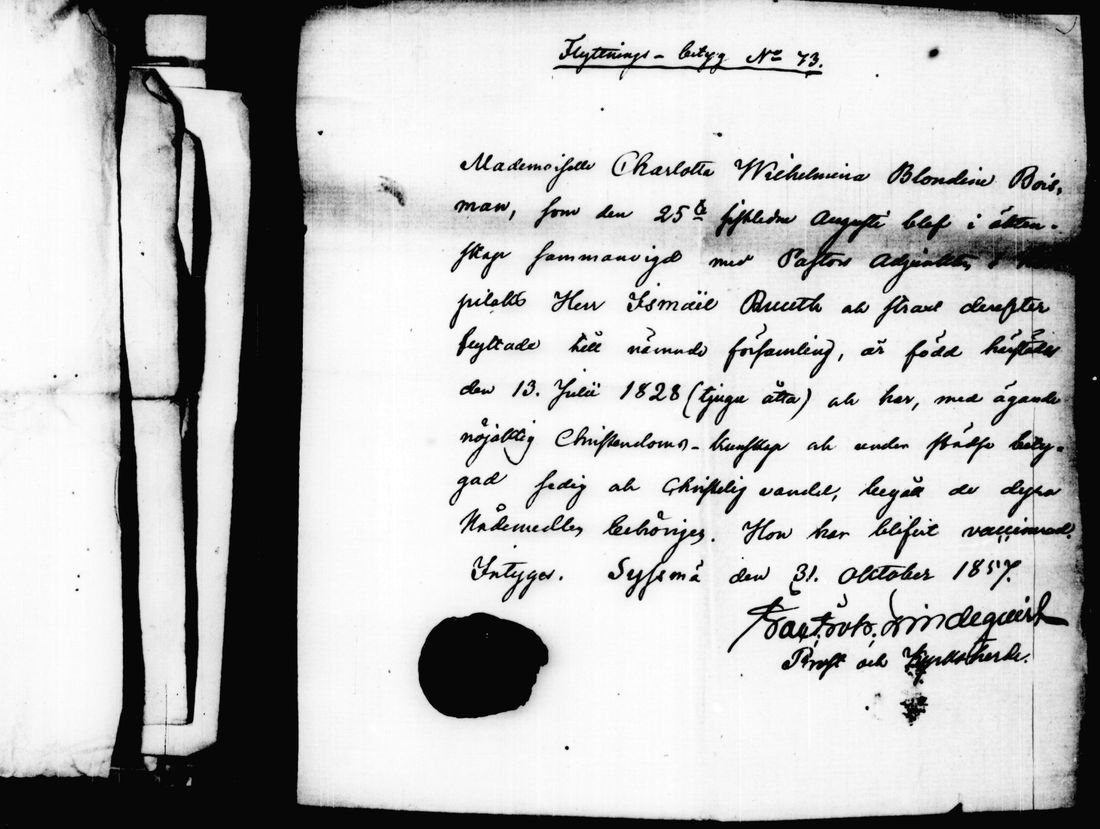 Flyttnings-betyg No 73.
Mademoiselle Charlotta Wilhelmina Blondine Bois,
man, som den 25te sistledne Augusti blef i ägten-
skap sammanvigd med Pastors Adjunkten i
pilaks Herr Ismaël Rueth och straxt derefter
flyttade till nämnde församling, är född härstädes
den 13. Julii 1828 (tjugu åtta) och har, med ägande
nöjaktig Christendoms-kunskap och under städse bety-
gad sedig och Christelig vandel, begått de dyra
Nådemedlen behörigen. Hon har blifvit vaccinerad.
Intygas. Syssmä den 31. Oktober 1857.
Lindequist
Prost och Kyrkoherde.